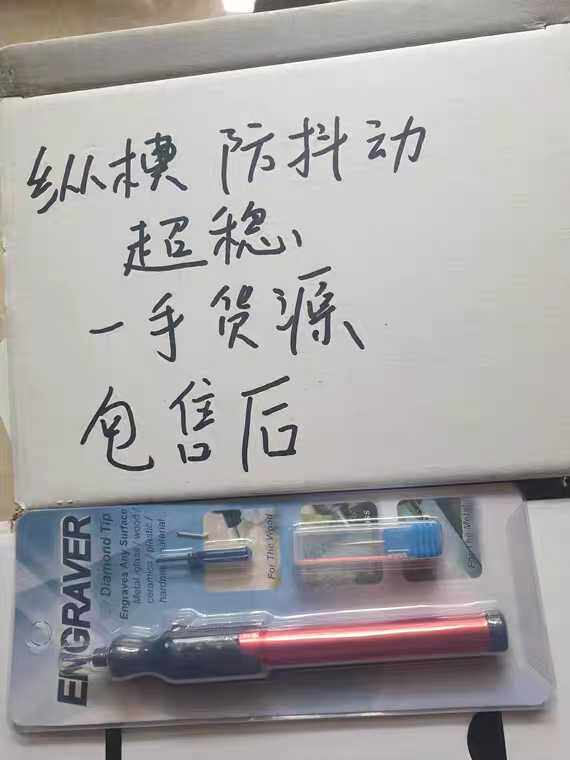 纵横 防抖动
超稳
一手货源
包售后
ENGRAVER
Diamond Tip
Engraves Any Surface
Metal /glass / wood /
ceramics / plastic /
material
For The Wood
For The Metal